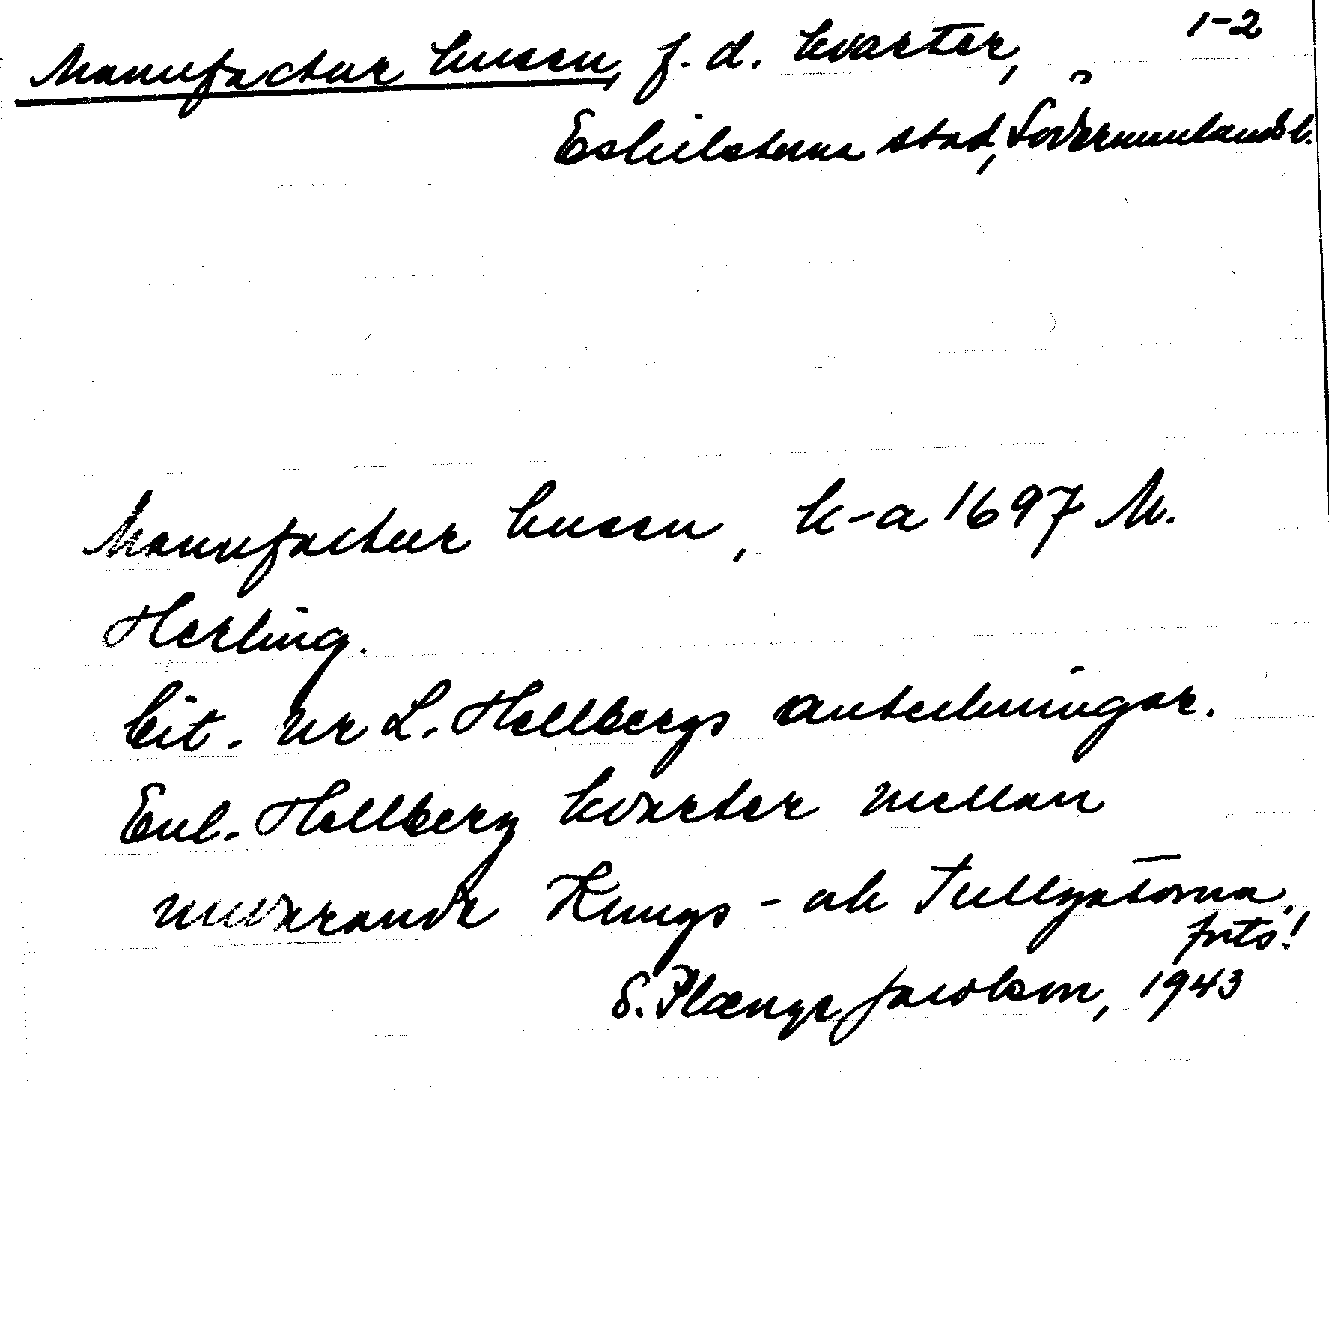 1-2
Manufactur husen, f. d. kvarter,
Eskilstuna stad, Södermanlands l.
Manufactur husen, k-a 1697 M.
Herling.
Cit. ur L. Hellbergs anteckningar.
Enl. Hellberg kvarter mellan
nuvarande Kungs- ok Tullgatorna.
forts!
S. Plænge Jacobson, 1943